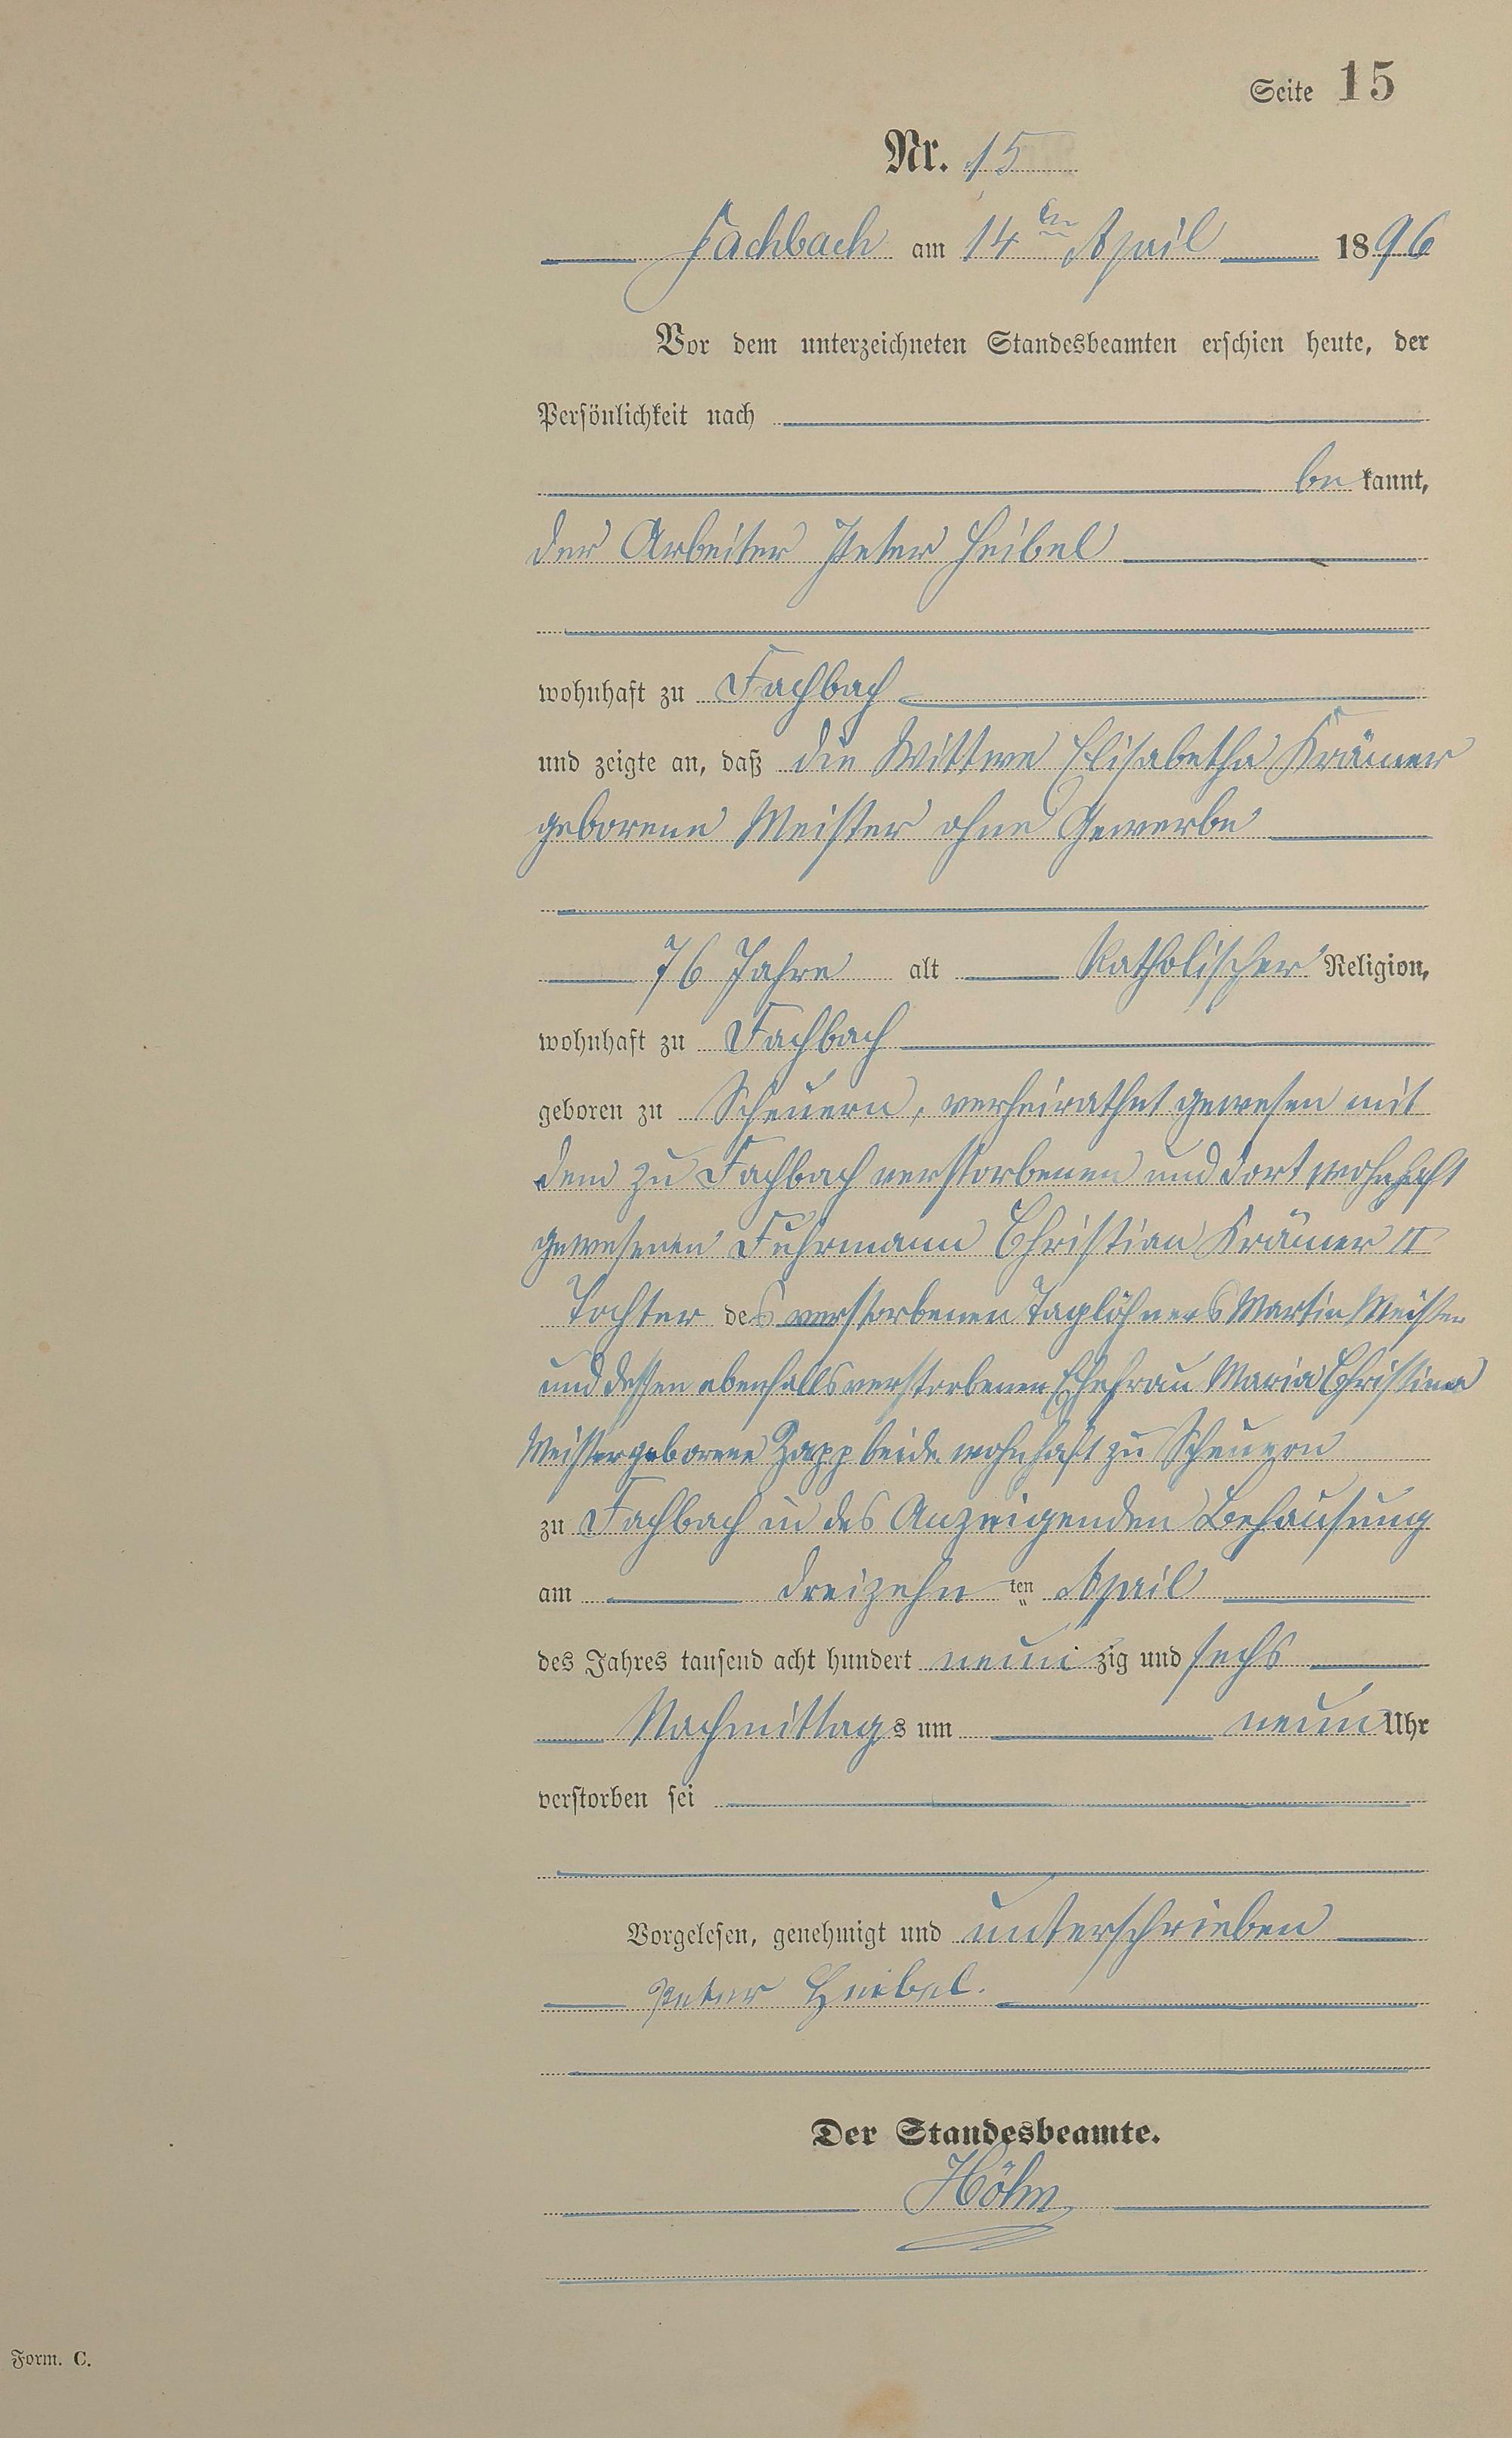 Seite 15
Nr. 15
Fachbach am 14ten April 1896
Vor dem unterzeichneten Standesbeamten erschien heute, der
Persönlichkeit nach
be kannt,
der Arbeiter Peter Heibel
wohnhaft zu Fachbach
und zeigte an, daß die Wittwe Elisabetha Krämer
geborene Meister ohne Gewerbe
76 Jahre alt Katholischer Religion,
wohnhaft zu Fachbach
geboren zu Scheuern, verheirathet gewesen mit
dem zu Fachbach verstorbenen und dort wohnhaft
gewesenen Fuhrmann Christian Krämer II
Tochter des verstorbenen Taglöhners Martin Meister
und dessen ebenfalls verstorbenen Ehefrau Maria Christina
Meister geborene Zapp beide wohnhaft zu Scheuern
zu Fachbach in des Anzeigenden Behausung
am dreizehn ten April
des Jahres tausend acht hundert neun zig und sechs
Nachmittags um neun Uhr
verstorben sei
Vorgelesen, genehmigt und unterschrieben
Peter Heibel.
Der Standesbeamte.
Höhn
Form. C.